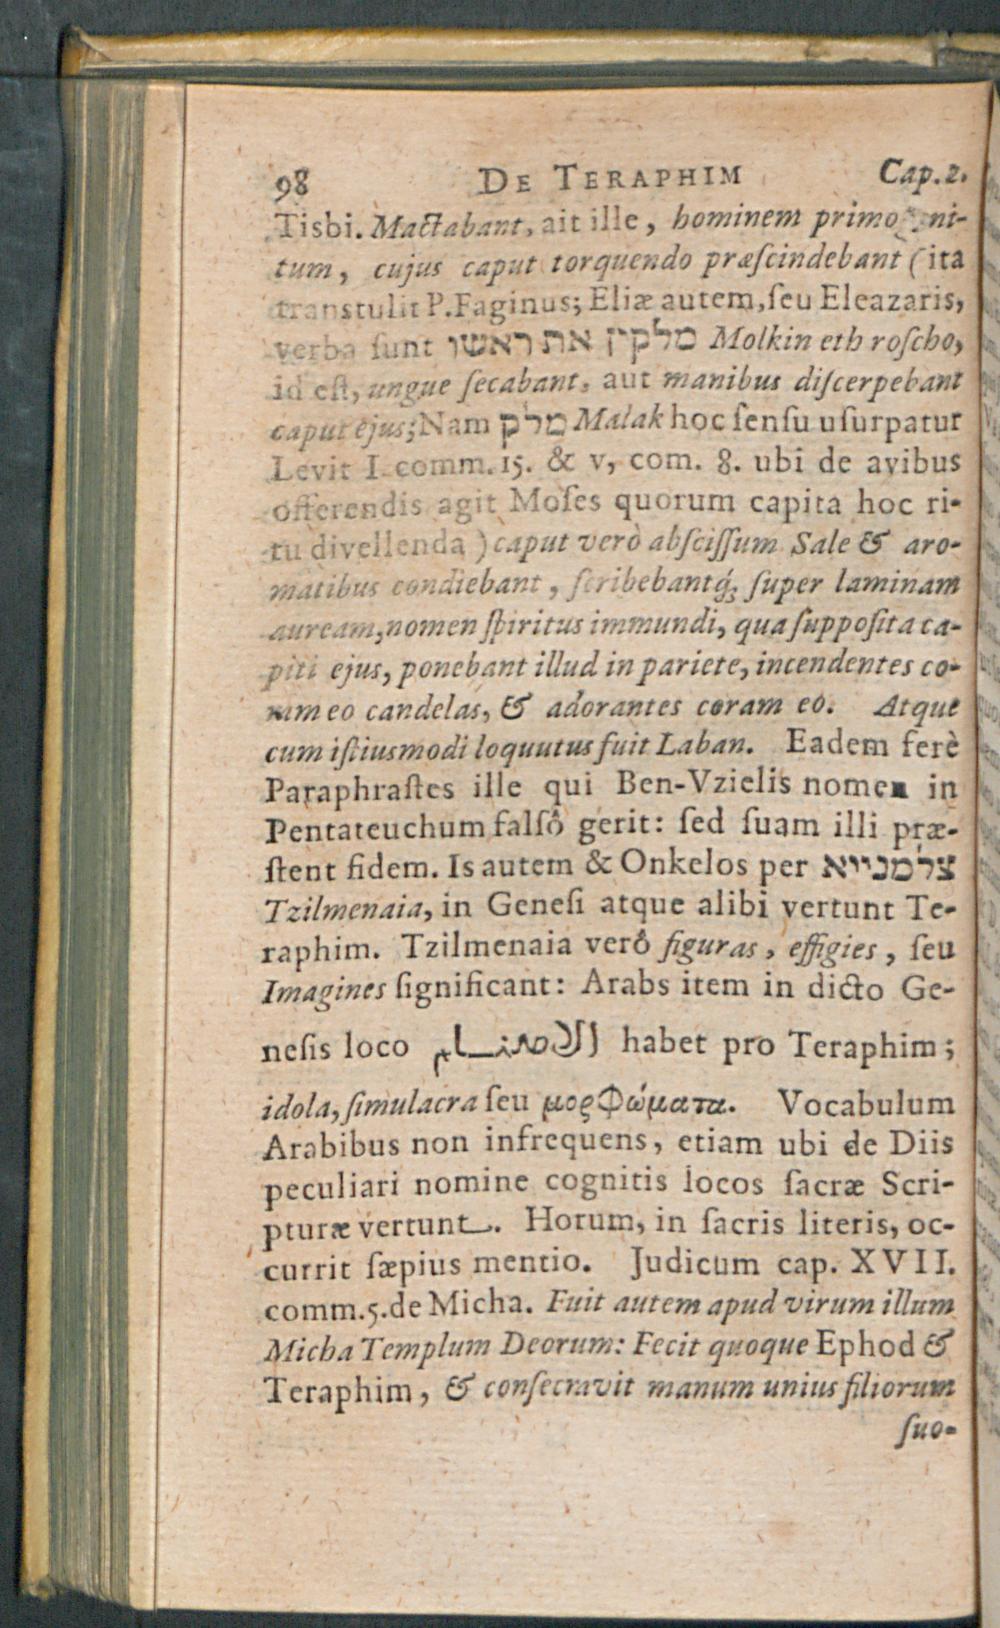 98 DE TERAPHIM Cap.2.
Tisbi. Mactabant, ait ille, hominem primogeni-
tum, cujus caput torquendo præſcindebant (ita
transtulit P.Faginus; Eliæ autem, ſeu Eleazaris,
verba ſunt מלקין את ראשו Molkin eth roſcho,
id eſt, ungue ſecabant, aut manibus diſcerpebant
caput ejus; Nam מלק Malak hoc ſenſu uſurpatur
Levit I comm. 15. & v, com. 8. ubi de avibus
offerendis agit Moſes quorum capita hoc ri-
tu divellenda ) caput verò abſciſſum Sale & aro-
matibus condiebant, ſcribebantq́; ſuper laminam
auream, nomen ſpiritus immundi, qua ſuppoſita ca-
piti ejus, ponebant illud in pariete, incendentes co-
ram eo candelas, & adorantes coram eo. Atque
cum iſtiusmodi loquutus fuit Laban. Eadem ferè
Paraphraſtes ille qui Ben-Vzielis nomen in
Pentateuchum falſô gerit: ſed ſuam illi præ-
ſtent fidem. Is autem & Onkelos per צלמנייא
Tzilmenaia, in Geneſi atque alibi vertunt Te-
raphim. Tzilmenaia verô figuras, effigies, ſeu
Imagines ſignificant: Arabs item in dicto Ge-
neſis loco الاصنام habet pro Teraphim;
idola, ſimulacra ſeu μορφώματα. Vocabulum
Arabibus non infrequens, etiam ubi de Diis
peculiari nomine cognitis locos ſacræ Scri-
pturæ vertunt. Horum, in ſacris literis, oc-
currit ſæpius mentio. Judicum cap. XVII.
comm.5.de Micha. Fuit autem apud virum illum
Micha Templum Deorum: Fecit quoque Ephod &
Teraphim, & conſecravit manum unius filiorum
ſuo-